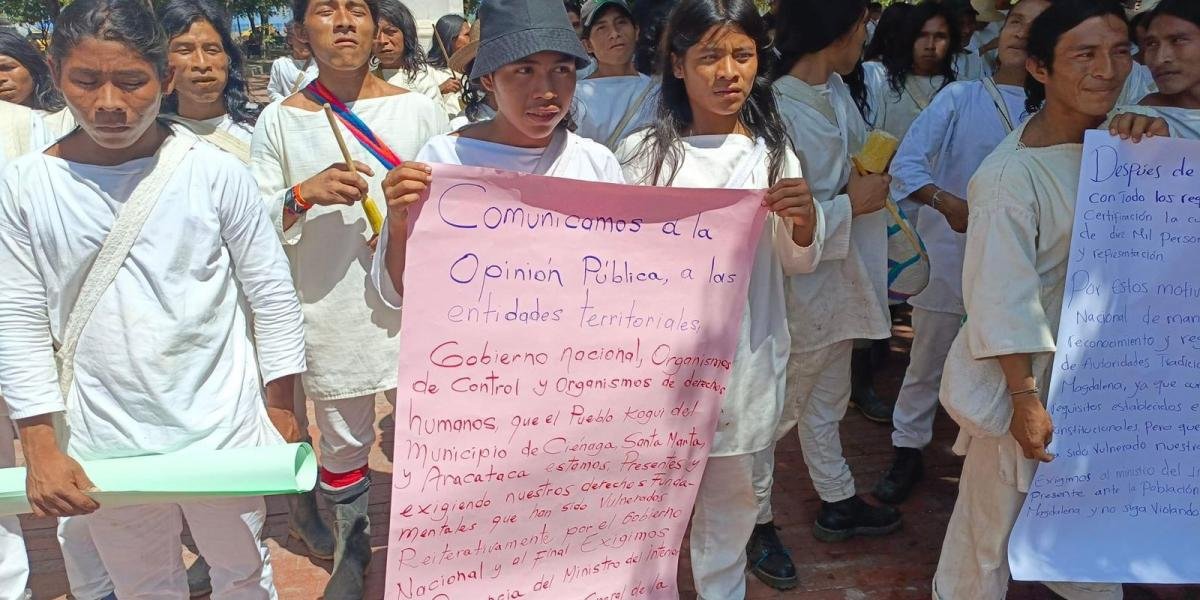 Comunicamos a la
Opinión Pública, a las
entidades territoriales,
Gobierno nacional, Organismos
de Control y Organismos de derechos
humanos, que el Pueblo Kogui del
Municipio de Ciénaga, Santa Marta,
y Aracataca estamos, Presentes y
exigiendo nuestros derechos Funda-
mentales que han sido Vulnerados
Reiterativamente por el Gobierno
Nacional y al Final Exigimos
del Ministro del Interior
General de la
Después de
con Todo los re
Certificación la cu
de diez mil Person
y representación
Por estos motiv
Nacional de man
reconocimiento y re
de Autoridades Tradicio
Magdalena, ya que
requisitos establecidos e
institucionales, Pero que
sido Vulnerado nuestro
Exigimos al ministro del I
Presente ante la Población
Magdalena y no siga Violando